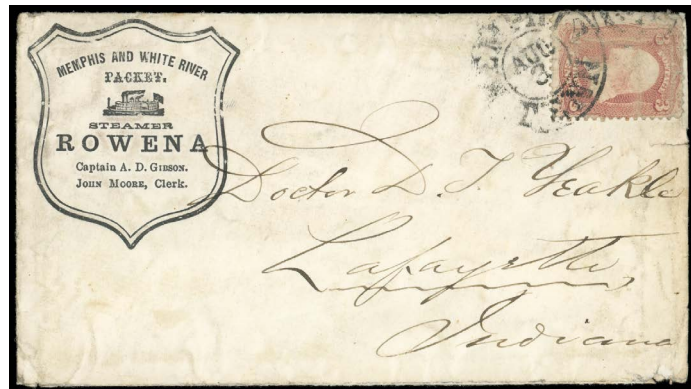 MEMPHIS AND WHITE RIVER
PACKET.
STEAMER
ROWENA
Captain A. D. GIBSON.
JOHN MOORE, Clerk.
AUG
3
Doctor D. T. Yeakle
Lafayette
Indiana